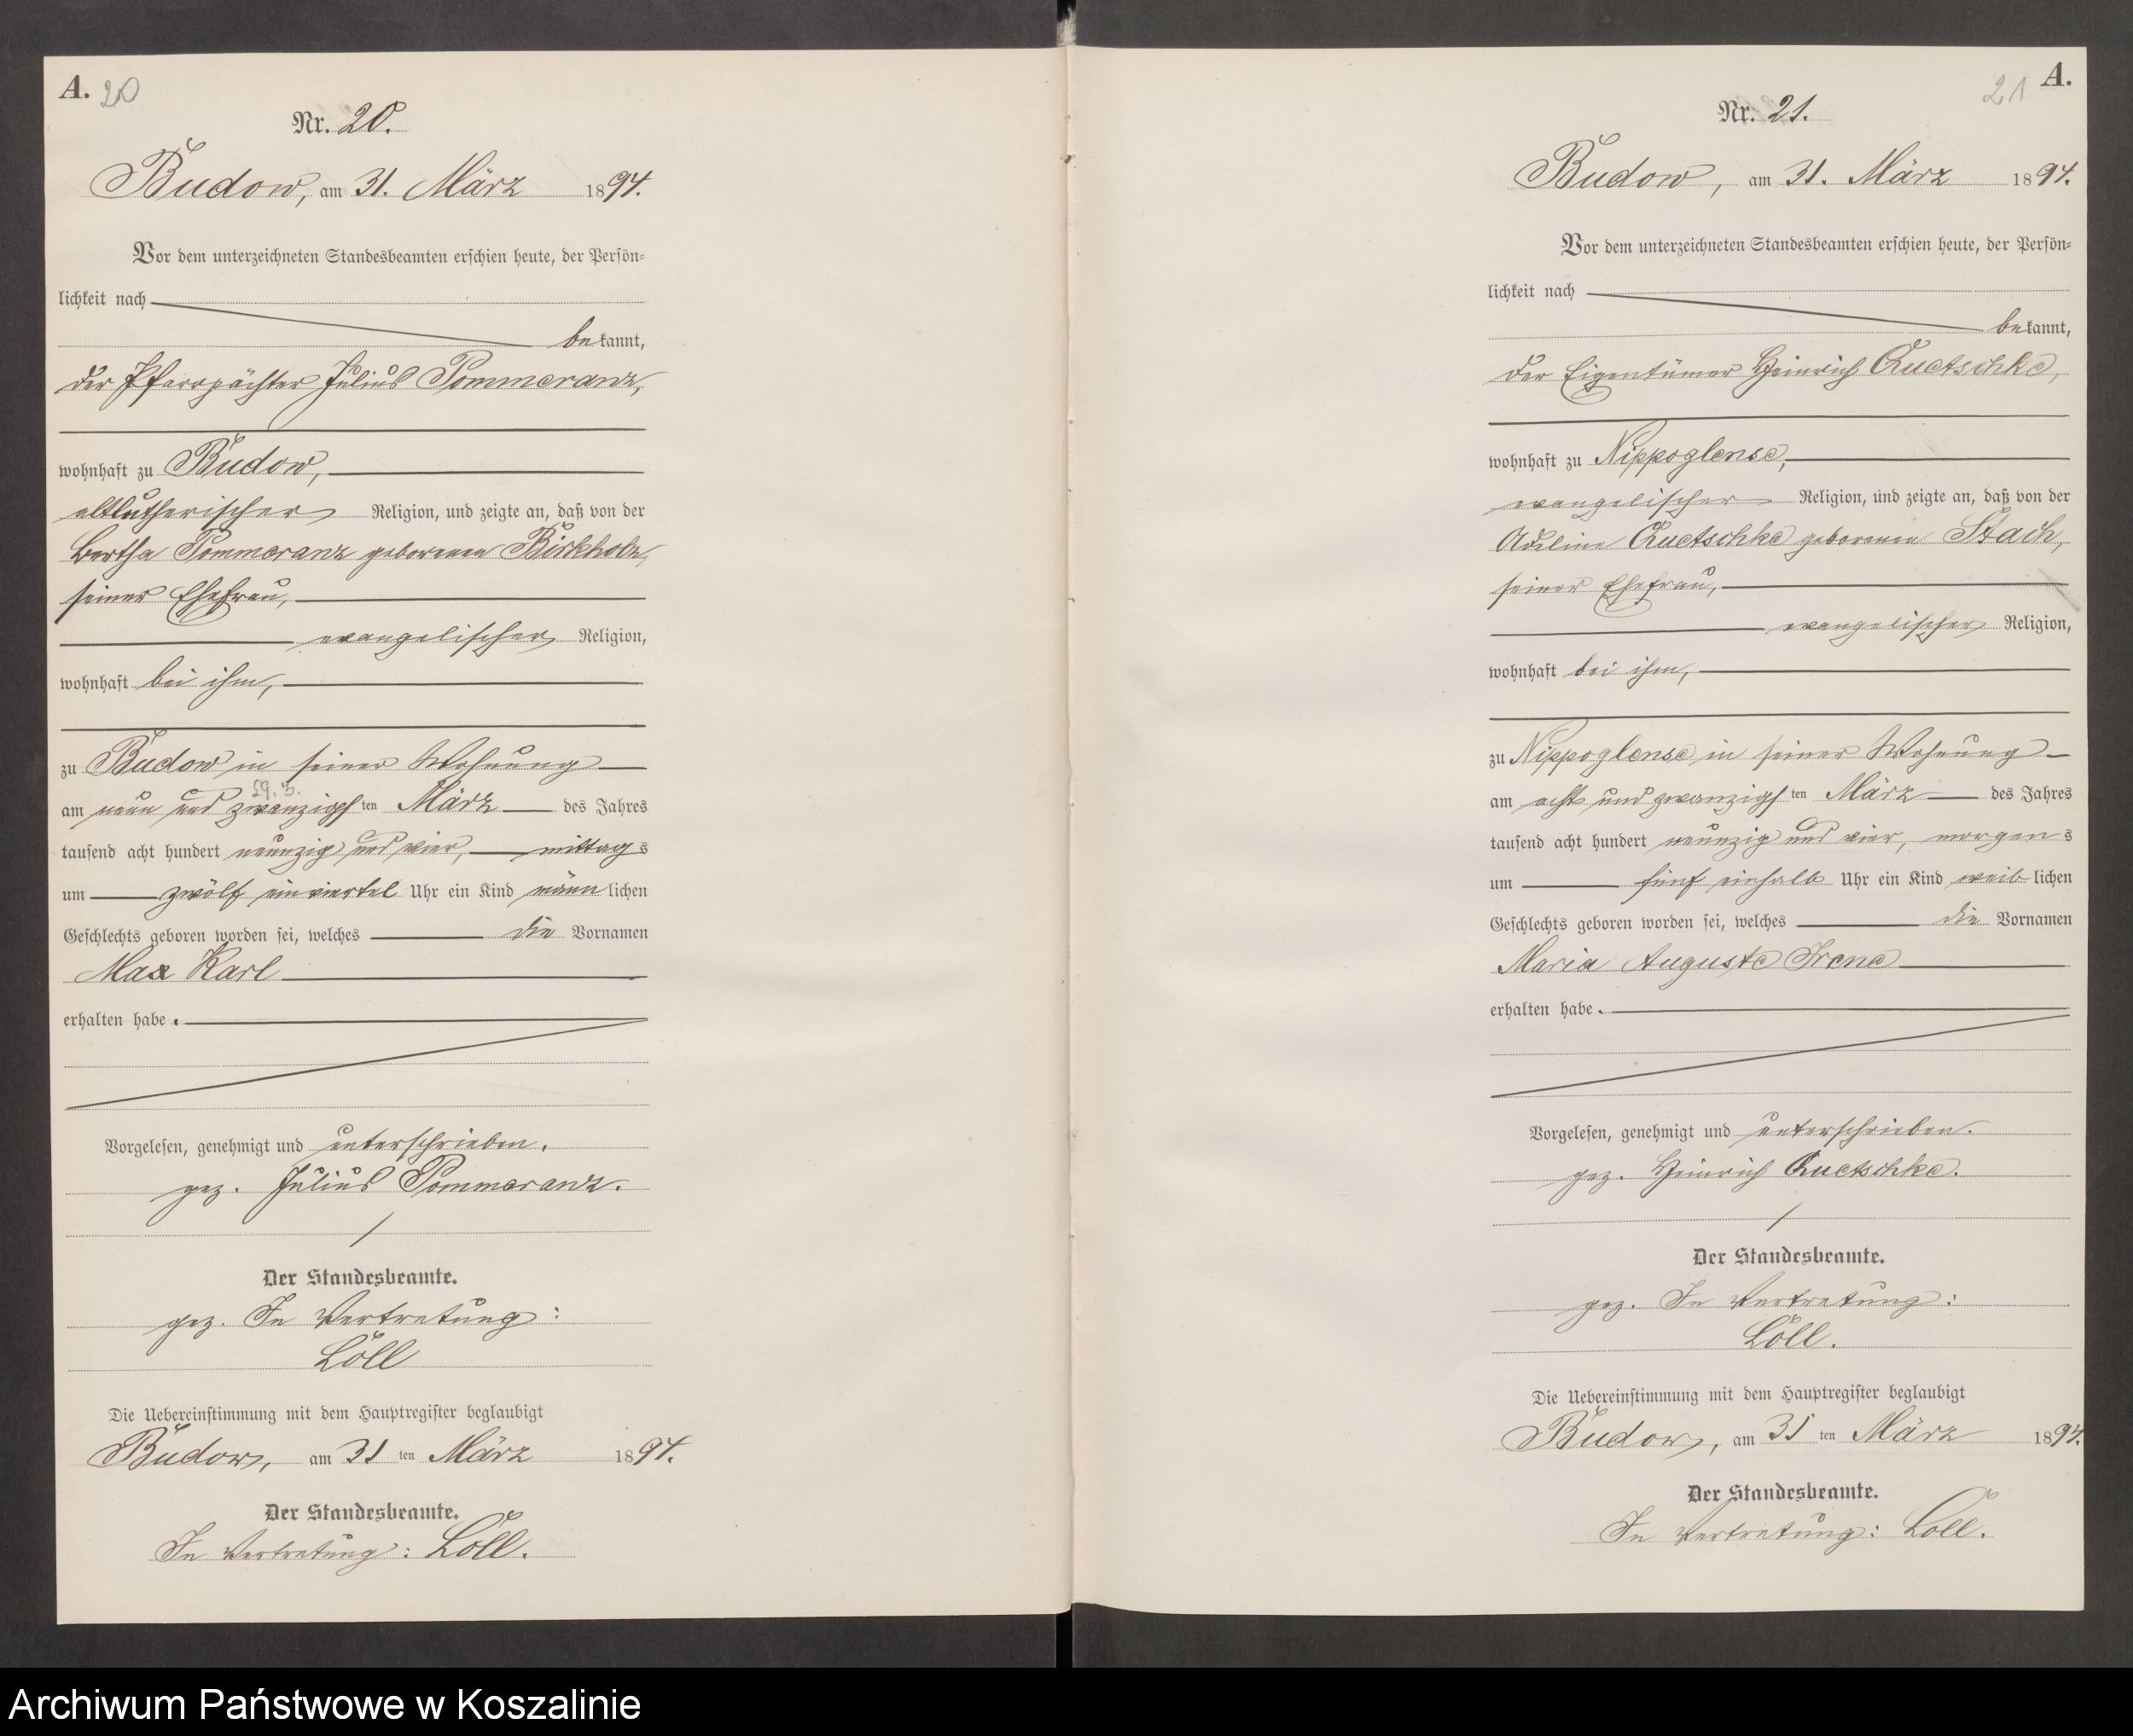 A. 20
Nr. 20.
Budow, am 31. März 1894.
Vor dem unterzeichneten Standesbeamten erschien heute, der Persön-
lichkeit nach
bekannt,
der Pfarrpächter Julius Pommeranz,
wohnhaft zu Budow,
altlutherischer Religion, und zeigte an, daß von der
Bertha Pommeranz geborenen Birkholz,
seiner Ehefrau,
evangelischer Religion,
wohnhaft bei ihm,
zu Budow in seiner Wohnung
29. 3.
am neun und zwanzigsten März des Jahres
tausend acht hundert neunzig und vier, mittags
um zwölf einviertel Uhr ein Kind männlichen
Geschlechts geboren worden sei, welches die Vornamen
Max Karl
erhalten habe.
Vorgelesen, genehmigt und unterschrieben.
gez. Julius Pommeranz.
Der Standesbeamte.
gez. In Vertretung:
Löll
Die Uebereinstimmung mit dem Hauptregister beglaubigt
Budow, am 31ten März 1894.
Der Standesbeamte.
In Vertretung: Löll.
21 A.
Nr. 21.
Budow, am 31. März 1894.
Vor dem unterzeichneten Standesbeamten erschien heute, der Persön-
lichkeit nach
bekannt,
der Eigentümer Heinrich Quetschke,
wohnhaft zu Nippoglense,
evangelischer Religion, und zeigte an, daß von der
Adeline Quetschke geborenen Stach,
seiner Ehefrau,
evangelischer Religion,
wohnhaft bei ihm,
zu Nippoglense in seiner Wohnung
am acht und zwanzigsten März des Jahres
tausend acht hundert neunzig und vier, morgens
um fünf einhalb Uhr ein Kind weiblichen
Geschlechts geboren worden sei, welches die Vornamen
Maria Auguste Irene
erhalten habe.
Vorgelesen, genehmigt und unterschrieben.
gez. Heinrich Quetschke.
Der Standesbeamte.
gez. In Vertretung:
Löll.
Die Uebereinstimmung mit dem Hauptregister beglaubigt
Budow, am 31ten März 1894.
Der Standesbeamte.
In Vertretung: Löll.
Archiwum Państwowe w Koszalinie